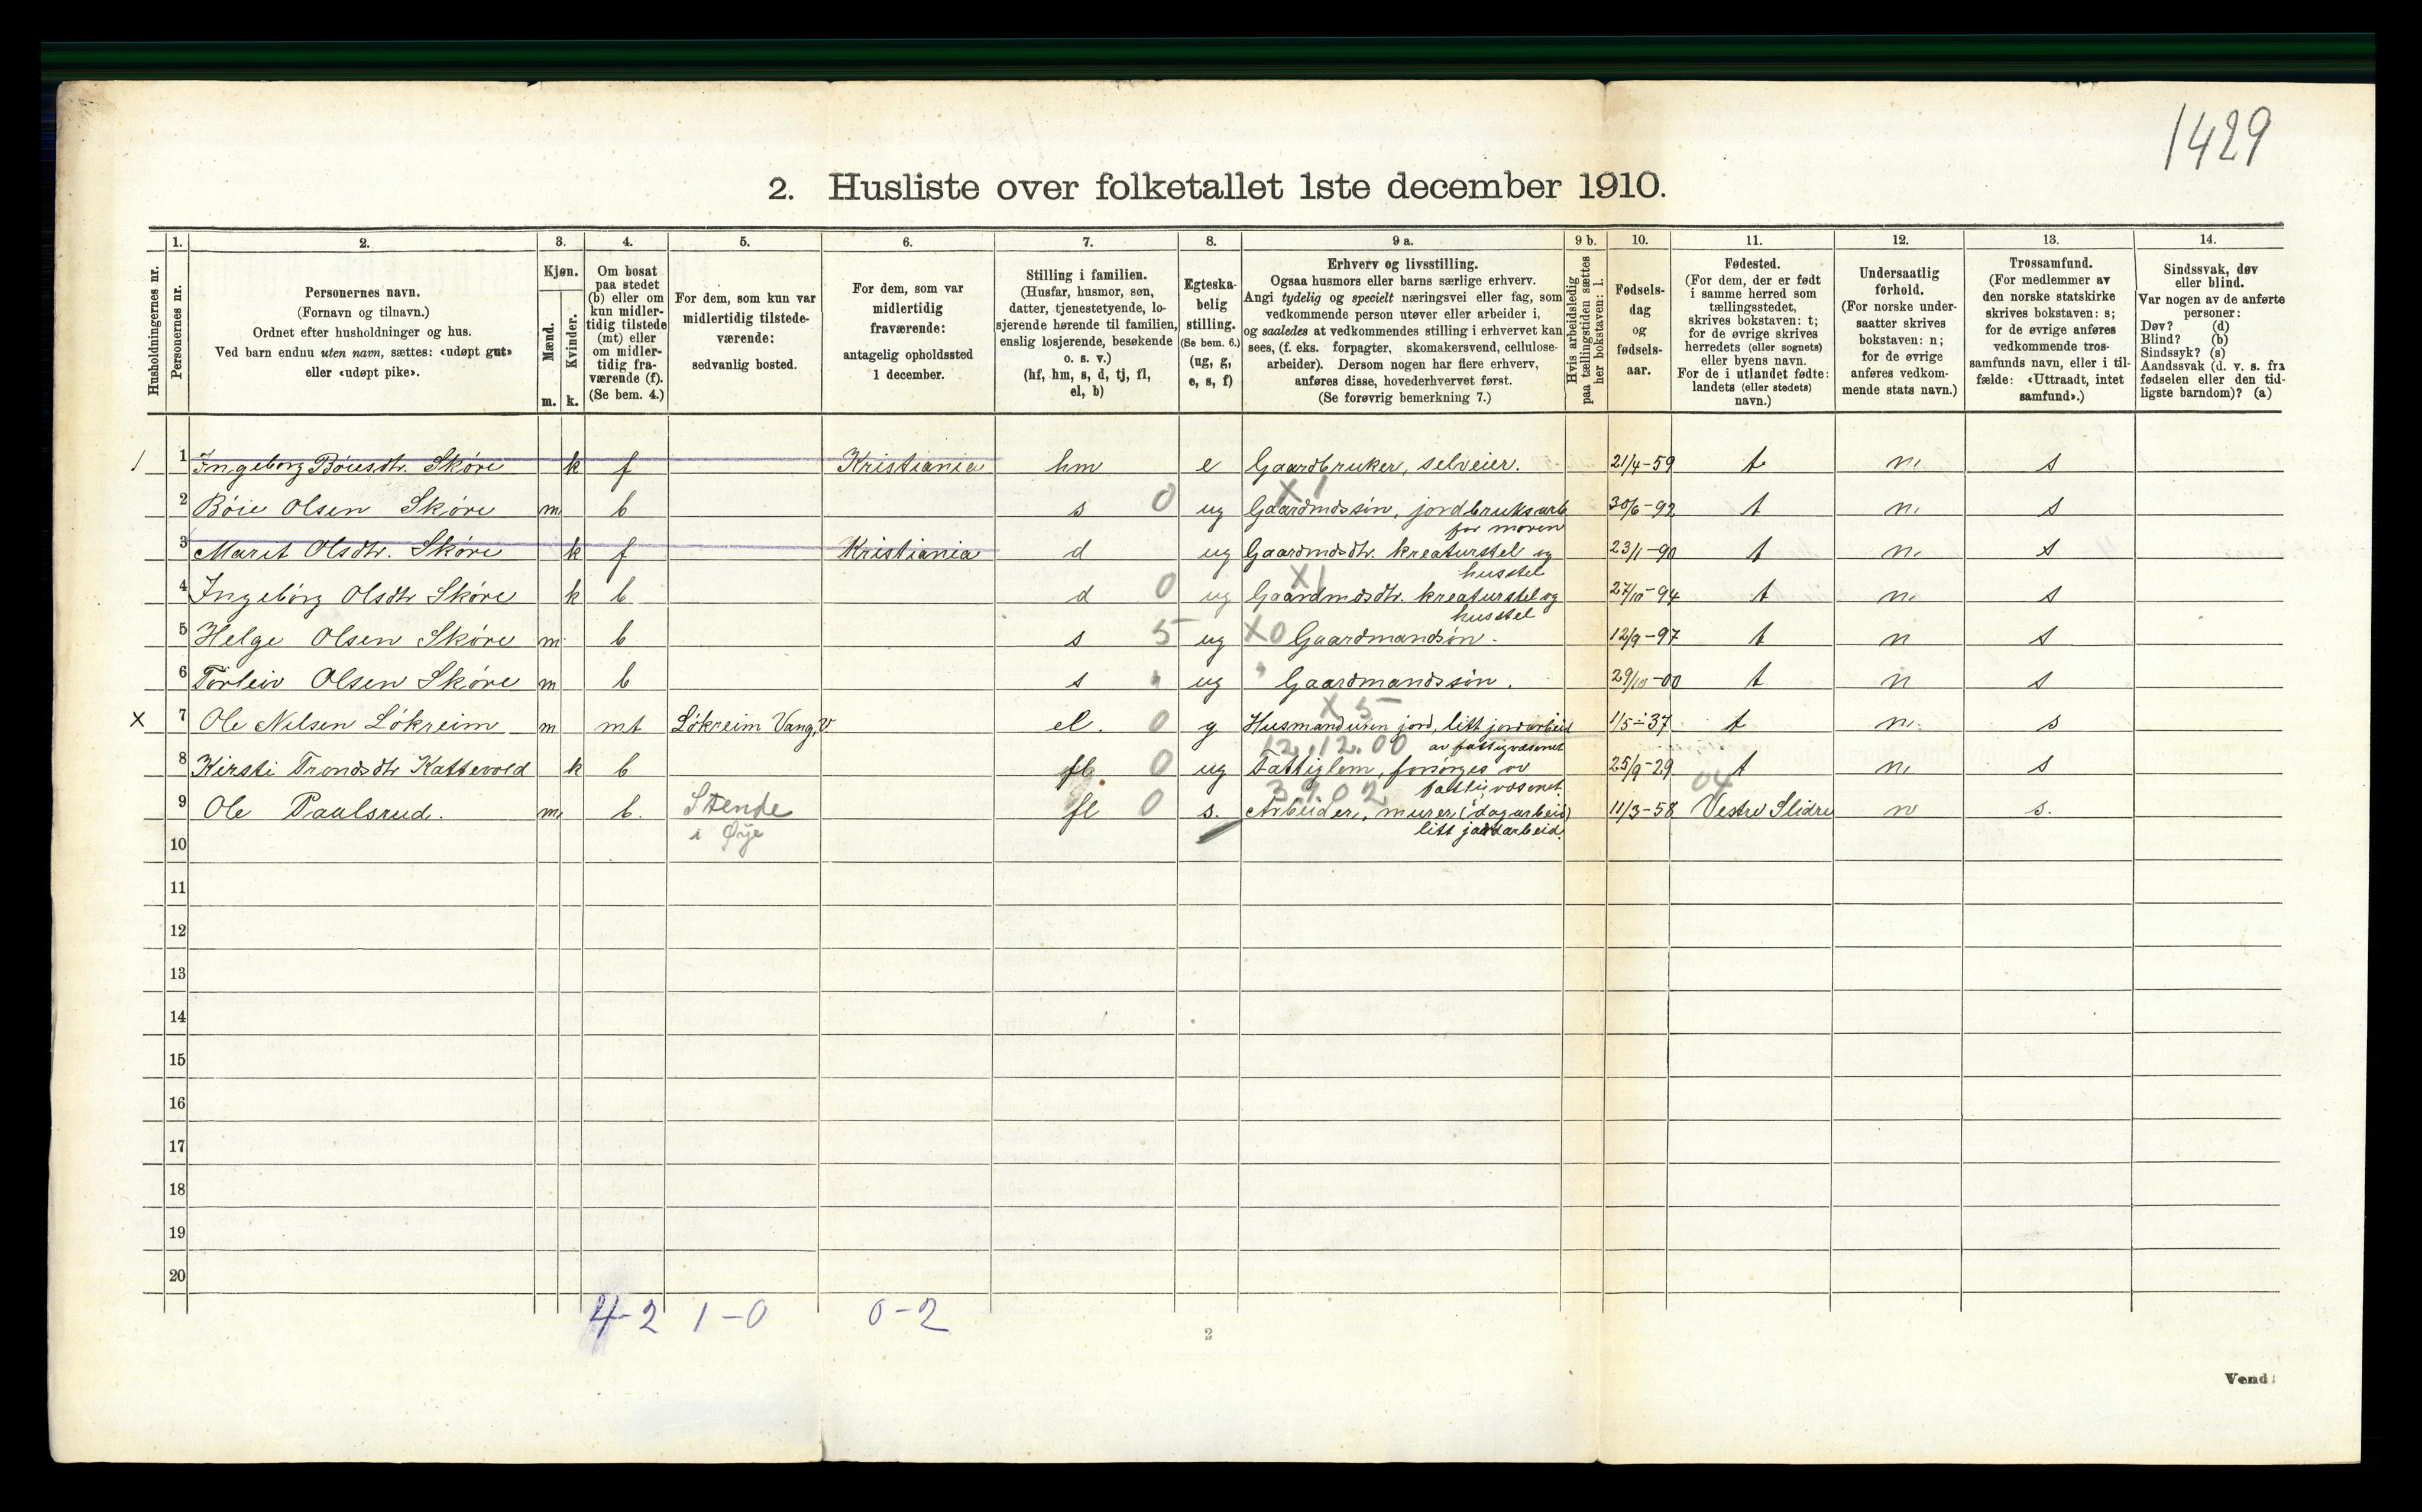 1429
2. Husliste over folketallet 1ste december 1910.
Husholdningernes nr.
1. Personernes nr.
2. Personernes navn.
(Fornavn og tilnavn.)
Ordnet efter husholdninger og hus.
Ved barn endnu uten navn, sættes: «udøpt gut»
eller «udøpt pike».
3. Kjøn.
Mænd. m.
Kvinder. k.
4. Om bosat
paa stedet
(b) eller om
kun midler-
tidig tilstede
(mt) eller
om midler-
tidig fra-
værende (f).
(Se bem. 4.)
5. For dem, som kun var
midlertidig tilstede-
værende:
sedvanlig bosted.
6. For dem, som var
midlertidig
fraværende:
antagelig opholdssted
1 december.
7. Stilling i familien.
(Husfar, husmor, søn,
datter, tjenestetyende, lo-
sjerende hørende til familien,
enslig losjerende, besøkende
o. s. v.)
(hf, hm, s, d, tj, fl,
el, b)
8. Egteska-
belig
stilling.
(Se bem. 6.)
(ug, g,
e, s, f)
9 a. Erhverv og livsstilling.
Ogsaa husmors eller barns særlige erhverv.
Angi tydelig og specielt næringsvei eller fag, som
vedkommende person utøver eller arbeider i,
og saaledes at vedkommendes stilling i erhvervet kan
sees, (f. eks. forpagter, skomakersvend, cellulose-
arbeider). Dersom nogen har flere erhverv,
anføres disse, hovederhvervet først.
(Se forøvrig bemerkning 7.)
9 b. Hvis arbeidsledig
paa tællingstiden sættes
her bokstaven: l.
10. Fødsels-
dag
og
fødsels-
aar.
11. Fødested.
(For dem, der er født
i samme herred som
tællingsstedet,
skrives bokstaven: t;
for de øvrige skrives
herredets (eller sognets)
eller byens navn.
For de i utlandet fødte:
landets (eller stedets)
navn.)
12. Undersaatlig
forhold.
(For norske under-
saatter skrives
bokstaven: n;
for de øvrige
anføres vedkom-
mende stats navn.)
13. Trossamfund.
(For medlemmer av
den norske statskirke
skrives bokstaven: s;
for de øvrige anføres
vedkommende tros-
samfunds navn, eller i til-
fælde: «Uttraadt, intet
samfund».)
14. Sindssvak, døv
eller blind.
Var nogen av de anførte
personer:
Døv? (d)
Blind? (b)
Sindssyk? (s)
Aandssvak (d. v. s. fra
fødselen eller den tid-
ligste barndom)? (a)
1 1 Ingeborg Bøiesdtr. Skøre k f Kristiania hm e Gaardbruker, selveier. 21/4-59 t n s
X 1
2 Bøie Olsen Skøre m b s 0 ug Gaardmdssøn, jordbruksarb 30/6-92 t n s
for moren
3 Marit Olsdtr. Skøre k f Kristiania d ug Gaardmdsdtr. kreaturstel og 23/1-90 t n s
husstel
X 1
4 Ingebörg Olsdtr Skøre k b d 0 ug Gaardmdsdtr. kreaturstel og 27/10-94 t n s
husstel
5 Helge Olsen Skøre m b s 5 ug X0 Gaardmandsøn. 12/9-97 t n s
6 Torleiv Olsen Skøre m b s " ug " Gaardmandssøn. 29/10-00 t n s
X 5
X 7 Ole Nilsen Løkreim m mt Løkreim Vang, V. el. 0 g Husmand uten jord, litt jordarbeid 1/5-37 t n s
12.12.00 av fattigvæsenet
8 Kirsti Trondsdtr Kattevold k b fl 0 ug Fattiglem, forsørges av 25/9-29 t n s
3.9.02 fattigvæsenet.
04
9 Ole Paulsrud. m b. Stende fl 0 s. Arbeider, murer (dagarbeid) 11/3-58 Vestre Slidre n s.
i Øye litt jordarbeid.
10
11
12
13
14
15
16
17
18
19
20
4-2 1-0 0-2
2
Vend!